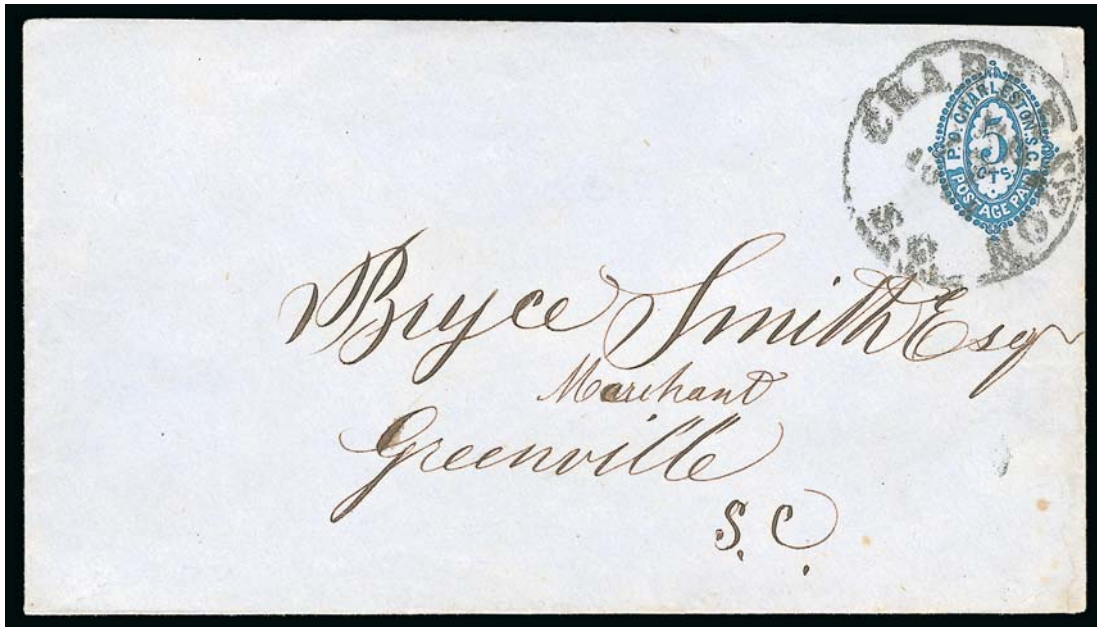 CHARLESTON
S.C.
P.O. CHARLESTON. S.C.
5
CTS.
POSTAGE PAID
Bryce Smith Esqr
Marchant
Greenville
S. C.